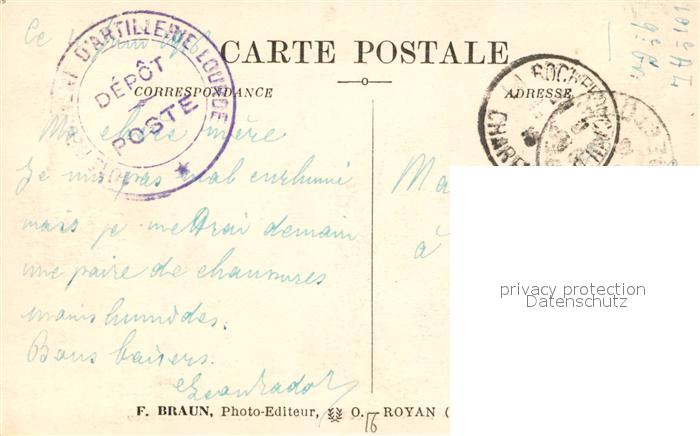 Ce
CARTE POSTALE
CORRESPONDANCE
ADRESSE
D'ARTILLERIE LOURDE
DÉPÔT
POSTE
LA ROCHE
CHAREN
Ma chère mère
Je suis pas mal enrhumé
mais je mettrai demain
une paire de chaussures
moins humides.
Bons baisers.
Ma
à
privacy protection
Datenschutz
F. BRAUN, Photo-Editeur, O. - ROYAN (
16